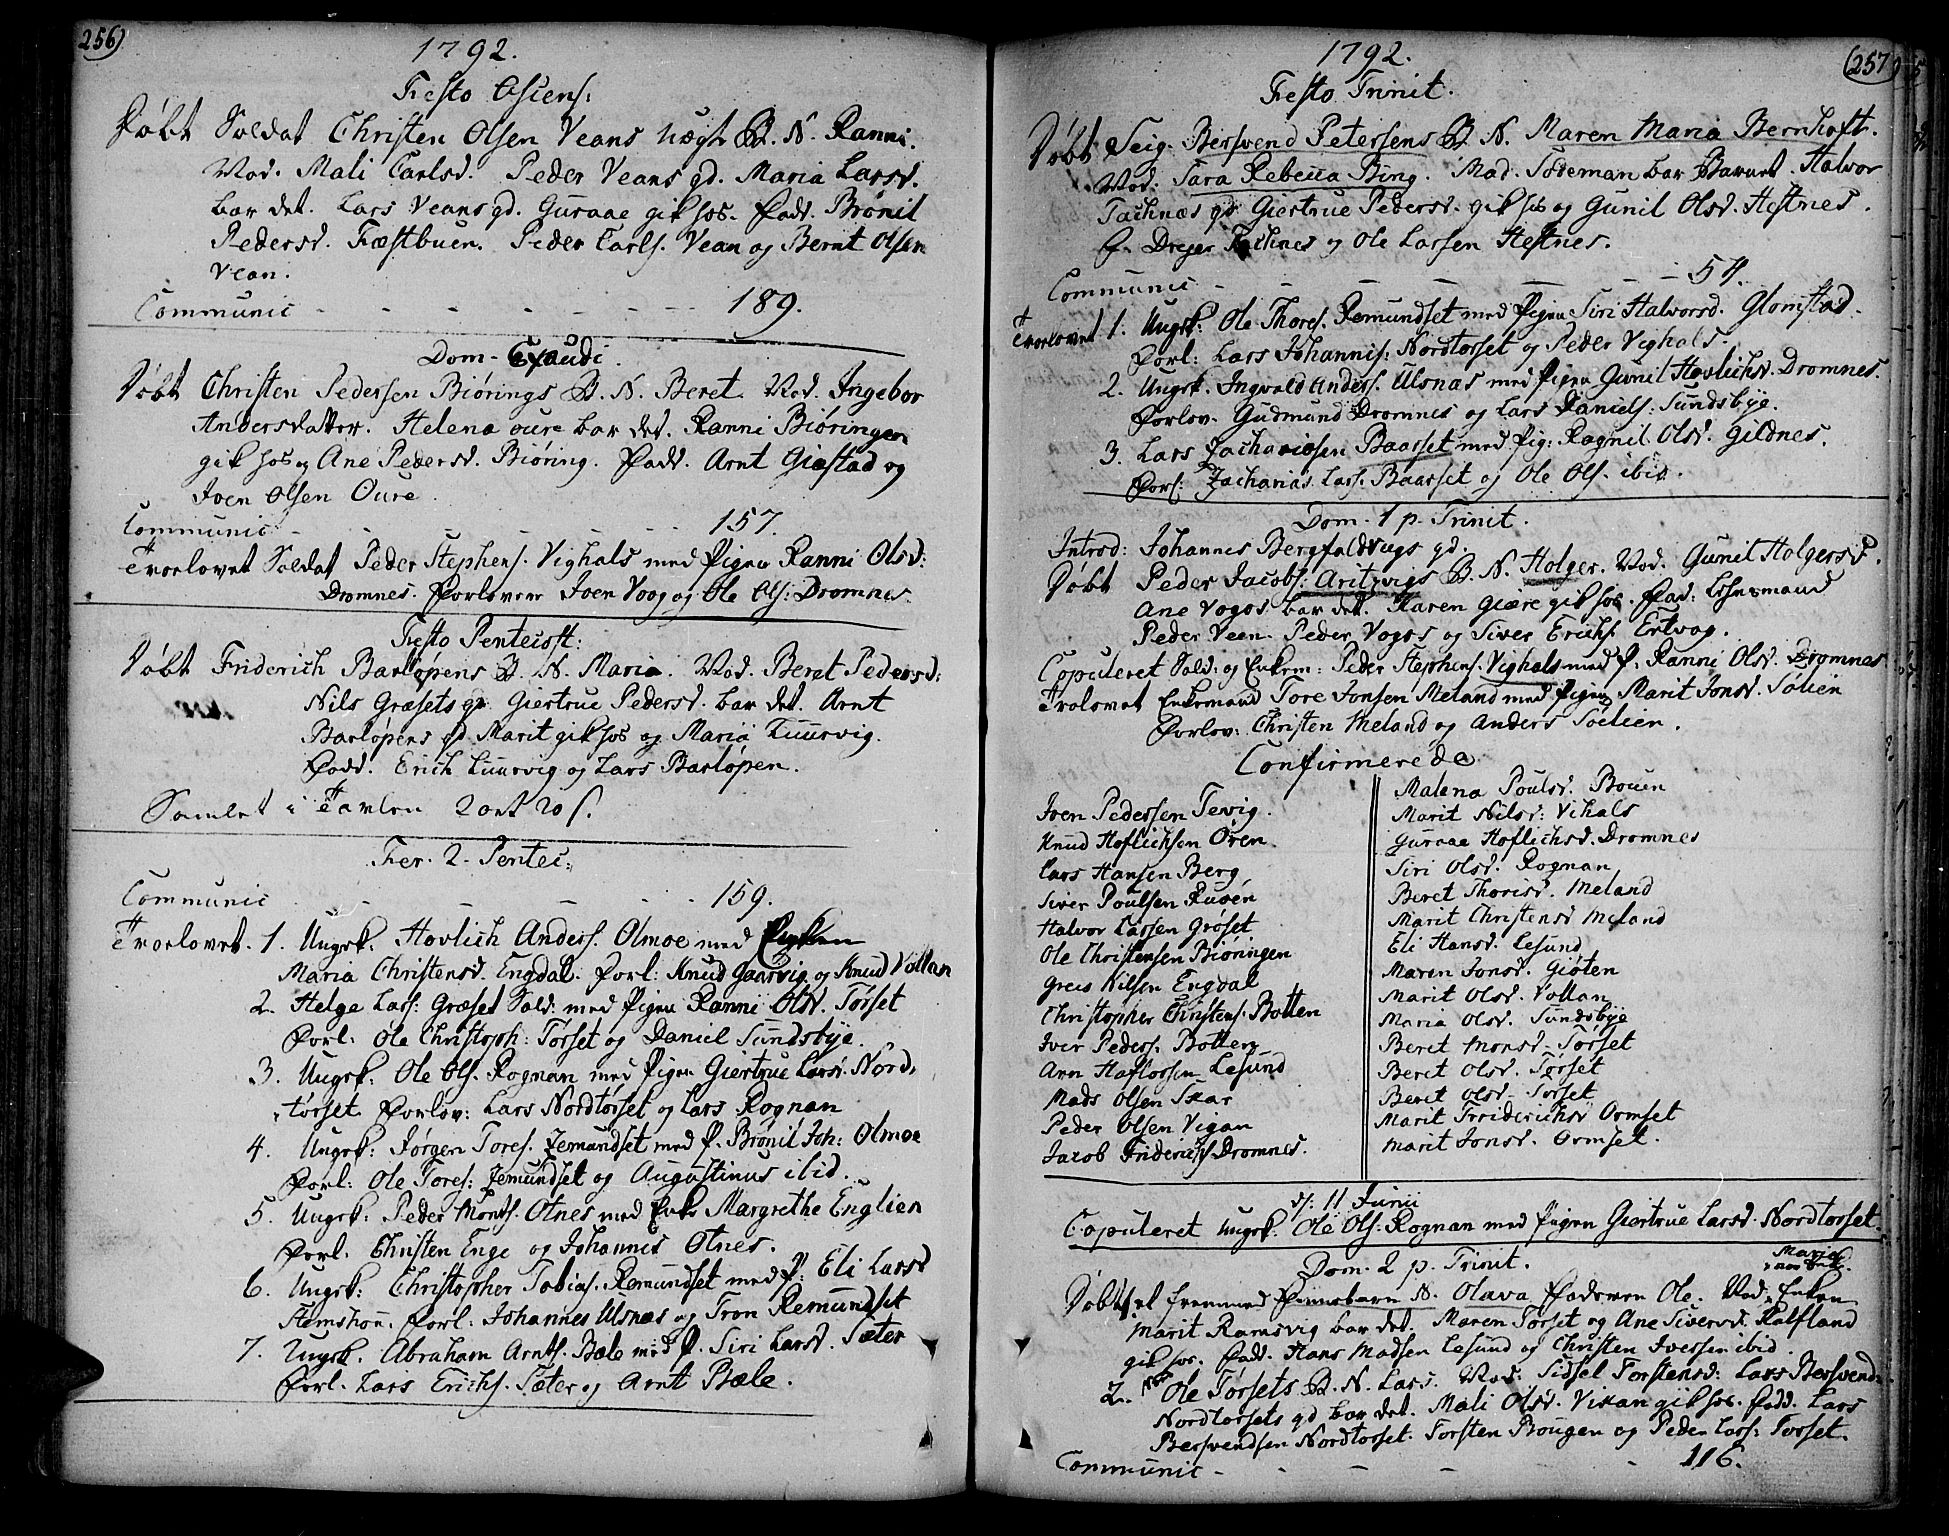 256)
1792.
Festo Ascens:
Døbt Soldat Christen Olsen Veans uægt B. N. Ranni.
Mod. Mali Carlsd. Peder Veans qd. Maria Larsd.
bar det. Lars Veans qd. Guraae gik hos. Fadd. Brønil
Pedersd. Fæstbuen. Peder Carls. Vean og Bernt Olsen
Vean.
Communic - - - - - - 189.
Dom. Exaudi.
Døbt Christen Pedersen Biørings B. N. Beret. Mod. Ingebor
Andersdatter. Helena oure bar det. Ranni Biøringen
gik hos og Ane Pedersd. Biøring. Fadd. Arnt Giæstad og
Joen Olsen Oure.
Communic - - - - - 157.
Trorlovet Soldat Peder Stephens. Vighals med Pigen Ranni Olsd:
Dromnes. Forlovere Joen Voog og Ole Ols: Dromnes.
Festo Pentecost:
Døbt Friderich Barløpens B. N. Maria. Mod. Beret Pedersd:
Nils Græsets qd. Giertrue Pedersd. bar det. Arnt
Barløpens qd Marit gik hos og Maria Kuurvig.
Fadd. Erich Kuurvig og Lars Barløpen.
Samlet i Tavlen 2 ort 20 s.
Fer. 2. Pentec:
Communic - - - - 159.
Trorlovet. 1. Ungk: Hovlich Anders. Olmoe med Pigen
Maria Christensd. Engdal. Forl: Knud Gaarvig og Knud Vollan
2. Helge Lars: Græset Sold: med Pigen Ranni Olsd. Tørset
Forl: Ole Christoph: Tørset og Daniel Sundsbye.
3. Ungk: Ole Ols. Rognan med Pigen Giertrue Larsd. Nord,
tørset. Forlov: Lars Nordtørset og Lars Rognan
4. Ungk: Jørgen Tores. Remundset med P. Brønil Joh: Olmoe
Forl: Ole Tores: Remundset og Augustinus ibid.
5. Ungk: Peder Monts. Otnes med Enke Margrethe Englien
Forl. Christen Enge og Johannes Otnes.
6. Ungk: Christopher Tobias. Remundset med P: Eli Larsd
Hemshou. Forl: Johannes Ulsnæs og Tron Remundset
7. Ungk. Abraham Arnts. Bæle med P. Siri Larsd. Sæter
Forl. Lars Erichs. Sæter og Arnt Bæle.
(257)
1792.
Festo Trinit.
Døbt Seig. Bersvend Petersens B. N. Maren Maria Bernhoft.
Mod: Sara Rebecca Bing. Mad. Sødeman bar Barnet. Halvor
Tachnæs qd Giertrue Pedersd. gik hos og Gunil Olsd. Hestnes.
F. Dreyer Tachnes og Ole Larsen Hestnes.
Communic - - - - - - 54.
Trorlovet 1. Ungk: Ole Thores. Remundset med Pigen Siri Halvorsd. Glomstad.
Forl: Lars Johannis: Nordtørset og Peder Vighals.
2. Ungk. Ingvald Anders. Ulsnas med Pigen Gunil Hovlichsd. Dromnes.
Forlov. Gudmund Dromnes og Lars Daniels: Sundsbye.
3. Lars Zachariasen Baasset med Pig: Ragnil Olsd. Gildnes.
Forl: Zacharias Lars. Baasset og Ole Ols. ibid.
Dom. 1 p. Trinit.
Introd: Johannes Bergfaldvugs qd.
Døbt Peder Jacobs: Aritzvigs B. N. Holger. Mod. Gunil Holgersd.
Ane Vogos bar det. Karen Giære gik hos. Fad: Lehnsmand
Peder Veen. Peder Vogos og Siver Erichs. Ertvog.
Copuleret Sold: og Enkem: Peder Stephens. Vighals med P. Ranni Olsd. Dromnes
Trolovet Enkemand Tore Jonsen Meland med Pigen Marit Jonsd. Sølien
Forlov: Christen Meland og Anders Søelien.
Confirmerede
Joen Pedersen Tevig.
Knud Hoflichsen Ören.
Lars Hansen Berg
Siver Poulsen Ruøen
Halvor Larsen Grøset
Ole Christensen Biøringen
Greis Nilsen Engdal
Christopher Christens. Botten
Iver Peders: Botten
Arn Haftorsen Lesund
Mads Olsen Skar
Peder Olsen Vigan
Jacob Friderichs Dromnes.
Malena Poulsd. Bouen
Marit Nilsd: Vihals
Guraae Hoflichsd. Dromnes
Siri Olsd. Rognan
Beret Thorisd. Meland
Marit Christensd Meland
Eli Hansd. Lesund
Maren Jonsd. Giøten
Marit Olsd. Vollan
Maria Olsd. Sundsbye
Beret Monsd. Tørset
Beret Olsd. Tørset
Beret Olsd. Tørset
Marit Friderichsd Ormset
Marit Jonsd. Ormset.
d: 11 Junii
Copuleret Ungk. Ole Ols: Rognan med Pigen Giertrue Larsd. Nordtørset.
Dom. 2 p. Trinit.
Maria
Døbt et fremmed Pinnebarn N. Olava Faderen Ole. Mod. Enken
Marit Ramsvig bar det. Maren Tørset og Ane Siversd. Kalfland
gik hos. Fadd. Hans Madsen Lesund og Christen Iversen ibid.
2. Ole Tørsets B. N. Lars. Mod: Sidsel Torstensd: Lars Bersvend:
Nordtørsets qd bar det. Mali Olsd. Vikan gik hos. Fadd. Lars
Bersvendsen Nordtørset. Torsten Bougen og Peder Lars: Tørset.
Communic - - - - - 116.